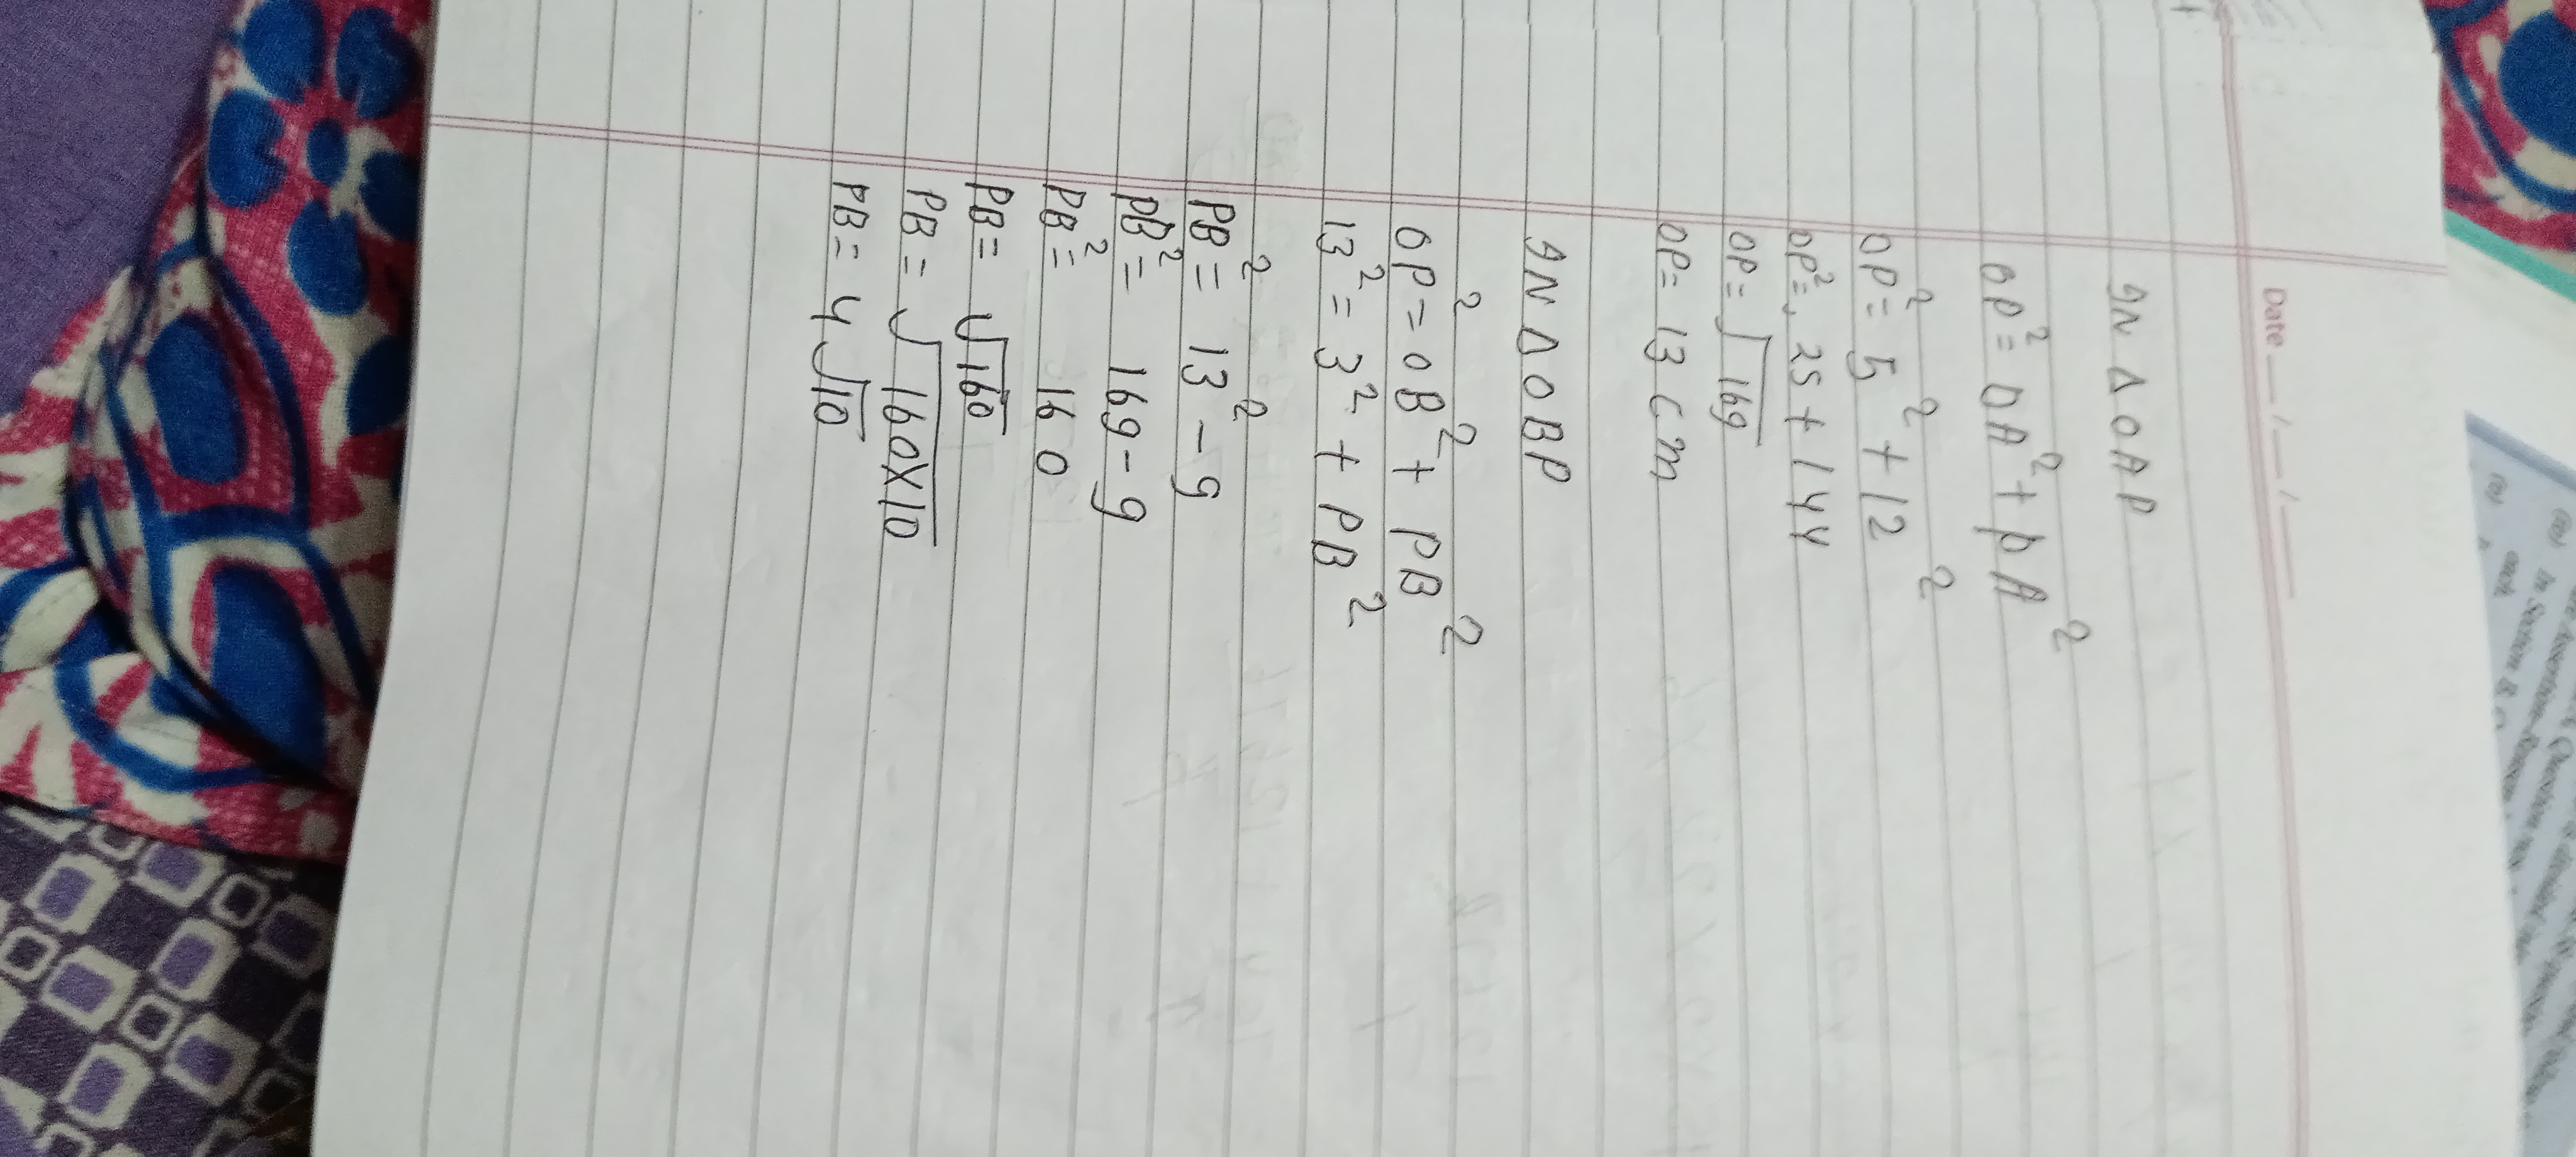 Date __/__/__
IN Δ OAP
OP² = OA² + PA²
OP² = 5² + 12²
OP² = 25 + 144
OP = √169
OP = 13 cm
IN Δ OBP
OP² = OB² + PB²
13² = 3² + PB²
PB² = 13² - 9
PB² = 169 - 9
PB² = 160
PB = √160
PB = √160X10
PB = 4√10